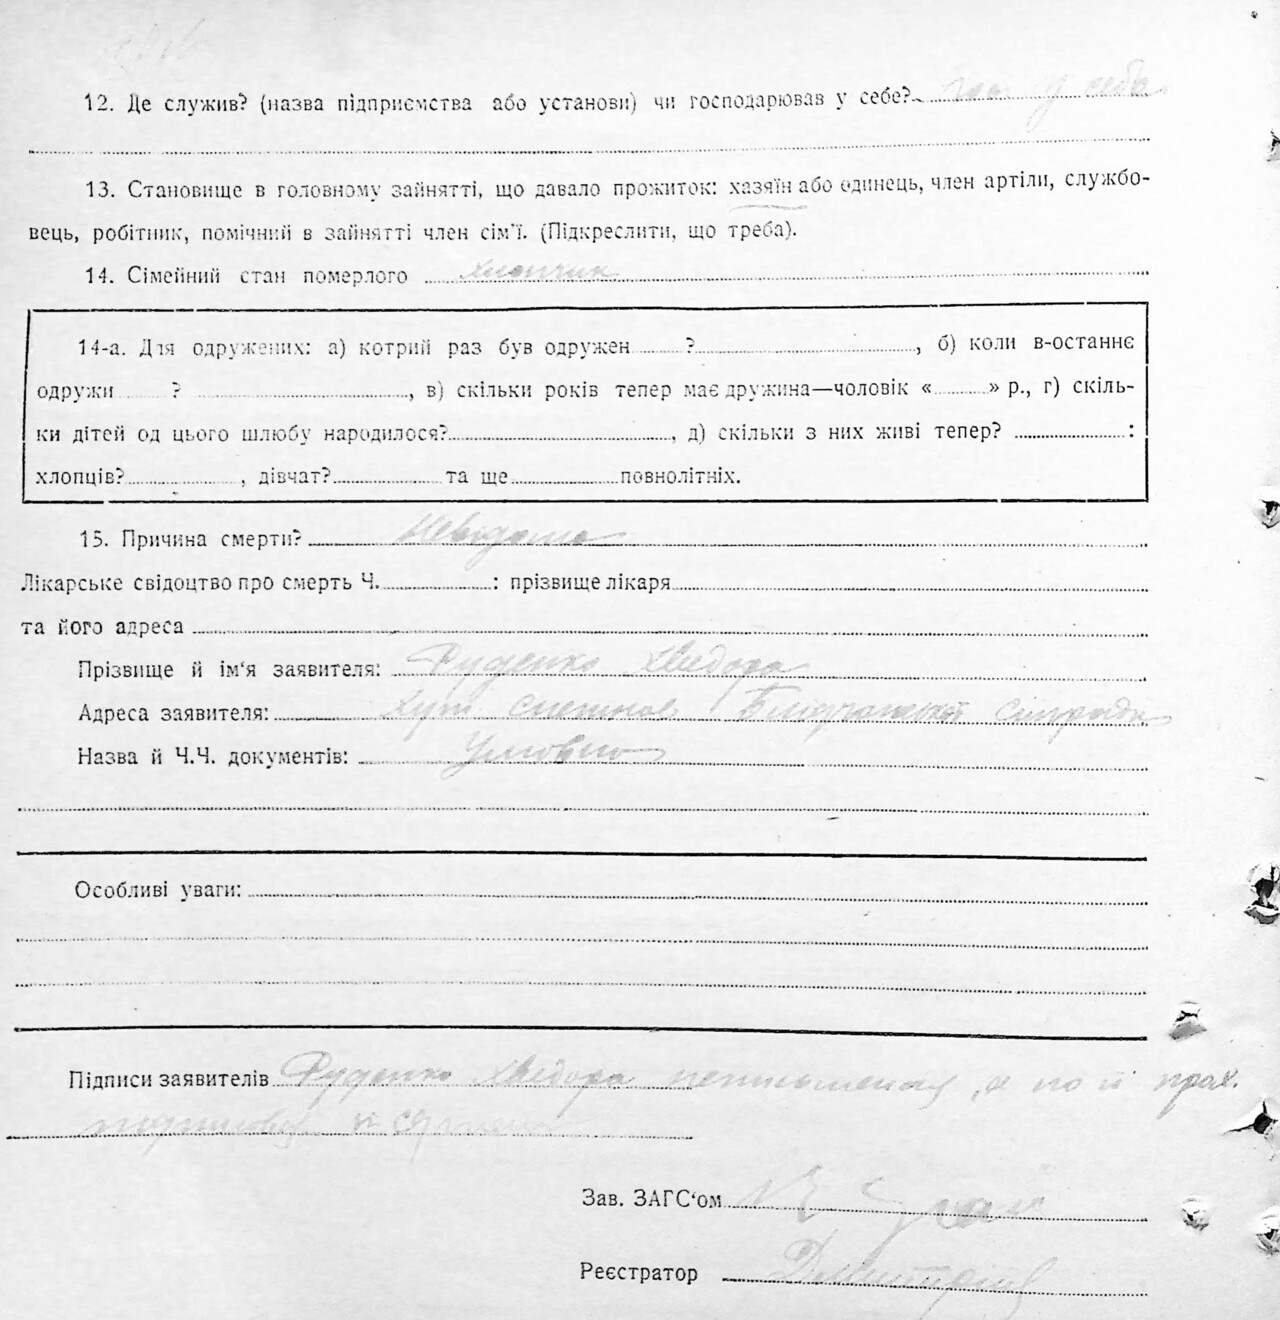 12. Де служив? (назва підприємства або установи) чи господарював у себе? госп у себе
13. Становище в головному зайнятті, що давало прожиток: хазяїн або одинець, член артіли, службо-
вець, робітник, помічний в зайнятті член сім'ї. (Підкреслити, що треба).
14. Сімейний стан померлого хлопчик
14-а. Для одружених: а) котрий раз був одружен ? , б) коли в-останнє
одружи ? , в) скільки років тепер має дружина—чоловік « » р., г) скіль-
ки дітей од цього шлюбу народилося? , д) скільки з них живі тепер? :
хлопців? , дівчат? та ще повнолітніх.
15. Причина смерти? Невідома
Лікарське свідоцтво про смерть Ч. : прізвище лікаря
та його адреса
Прізвище й ім'я заявителя: Руденко Хведора
Адреса заявителя: Хут. сільради
Назва й Ч.Ч. документів: Умовно
Особливі уваги:
Підписи заявителів Руденко Хведора неписьменна, а по її прох.
Зав. ЗАГС'ом
Реєстратор